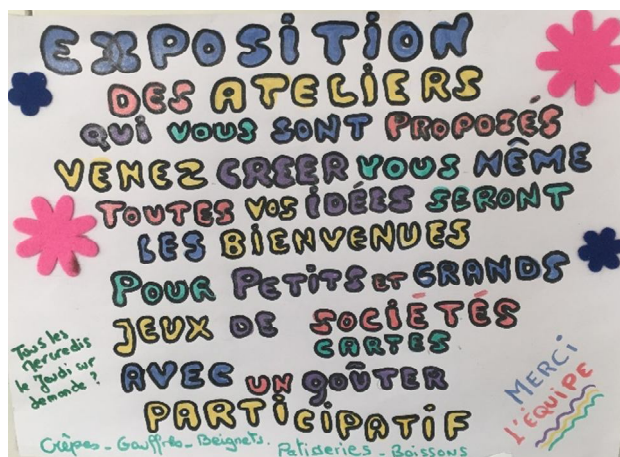 EXPOSITION
DES ATELIERS
QUI VOUS SONT PROPOSÉS
VENEZ CREER VOUS MÊME
TOUTES VOS IDÉES SERONT
LES BIENVENUES
POUR PETITS ET GRANDS
JEUX DE SOCIÉTÉS
CARTES
AVEC UN GOÛTER
PARTICIPATIF
Tous les
Mercredis
le Jeudi sur
demande ?
MERCI
L'ÉQUIPE
Crêpes - Gauffres - Beignets.
Patisseries - Boissons